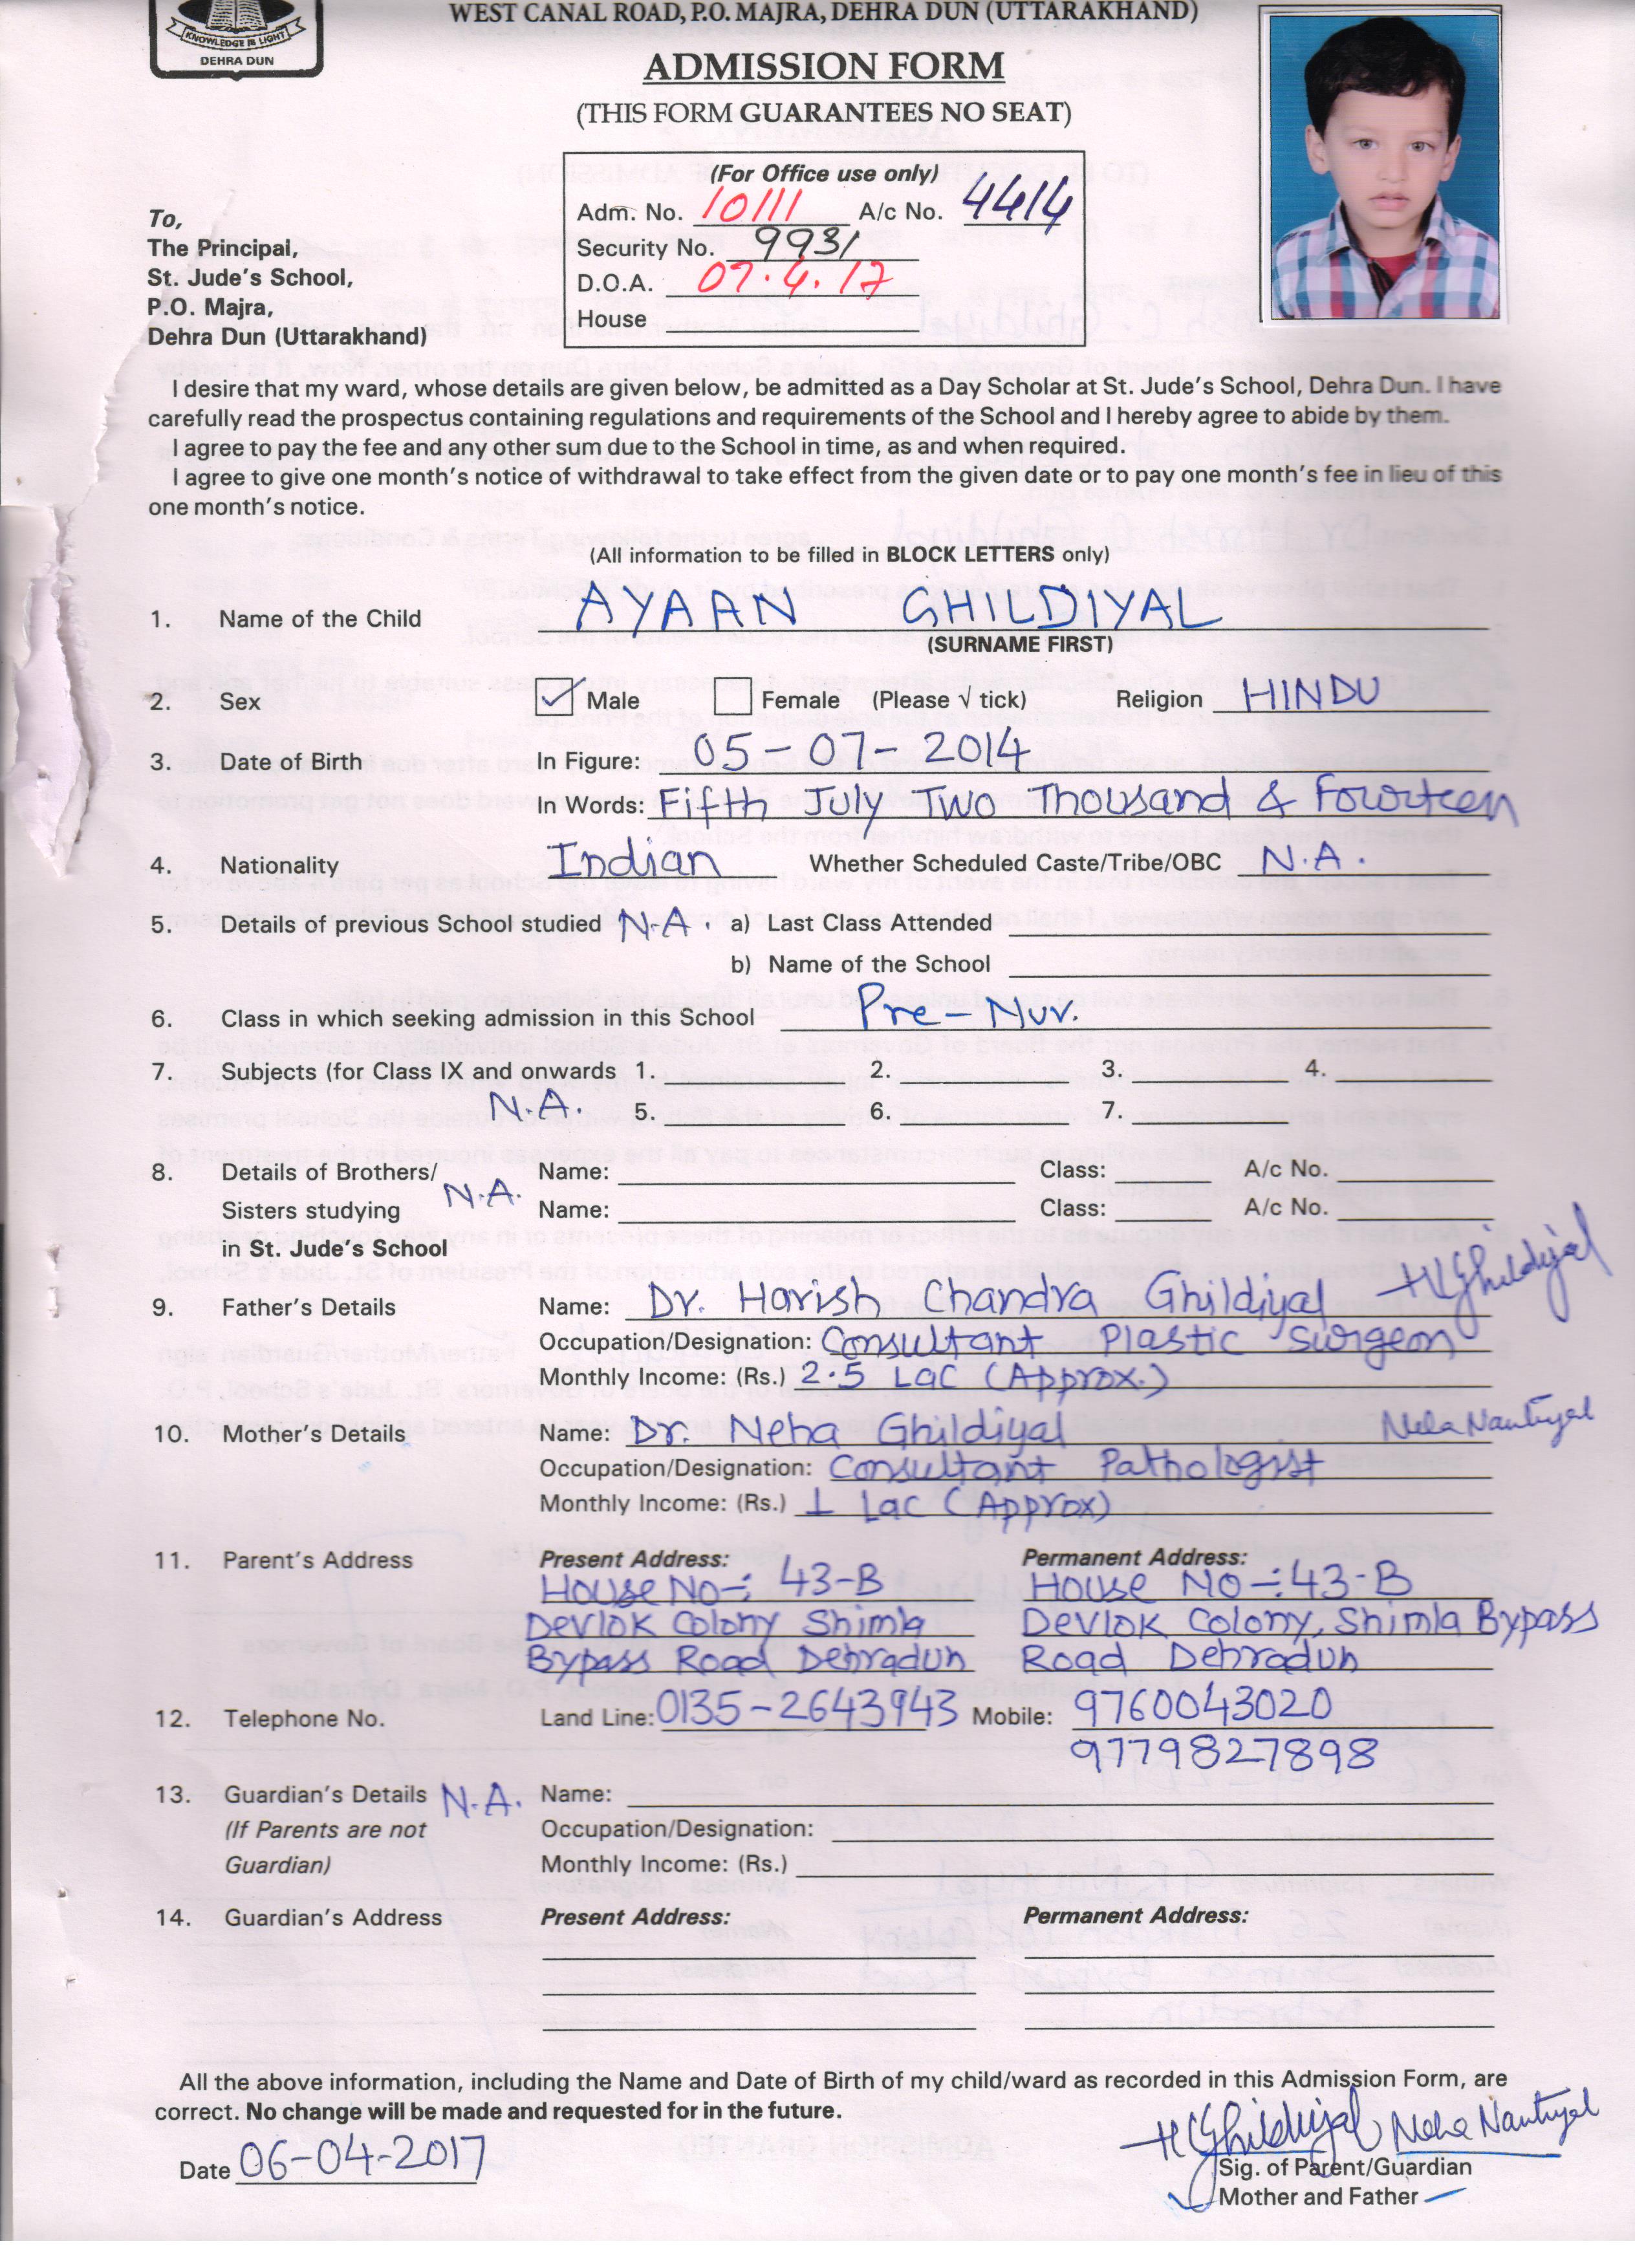 KNOWLEDGE IS LIGHT
DEHRA DUN
WEST CANAL ROAD, P.O. MAJRA, DEHRA DUN (UTTARAKHAND)
ADMISSION FORM
(THIS FORM GUARANTEES NO SEAT)
(For Office use only)
Adm. No. 10111 A/c No. 4414
Security No. 9931
D.O.A. 07.4.17
House
To,
The Principal,
St. Jude's School,
P.O. Majra,
Dehra Dun (Uttarakhand)
I desire that my ward, whose details are given below, be admitted as a Day Scholar at St. Jude's School, Dehra Dun. I have
carefully read the prospectus containing regulations and requirements of the School and I hereby agree to abide by them.
I agree to pay the fee and any other sum due to the School in time, as and when required.
I agree to give one month's notice of withdrawal to take effect from the given date or to pay one month's fee in lieu of this
one month's notice.
(All information to be filled in BLOCK LETTERS only)
1. Name of the Child AYAAN GHILDIYAL
(SURNAME FIRST)
2. Sex Male Female (Please √ tick) Religion HINDU
3. Date of Birth In Figure: 05-07-2014
In Words: Fifth July Two Thousand & Fourteen
4. Nationality Indian Whether Scheduled Caste/Tribe/OBC N.A.
5. Details of previous School studied N.A. a) Last Class Attended
b) Name of the School
6. Class in which seeking admission in this School Pre-Nur.
7. Subjects (for Class IX and onwards 1. 2. 3. 4.
N.A. 5. 6. 7.
8. Details of Brothers/ N.A. Name: Class: A/c No.
Sisters studying Name: Class: A/c No.
in St. Jude's School
9. Father's Details Name: Dr. Harish Chandra Ghildiyal HCGhildiyal
Occupation/Designation: Consultant Plastic Surgeon
Monthly Income: (Rs.) 2.5 Lac (Approx.)
10. Mother's Details Name: Dr. Neha Ghildiyal Neha Nautiyal
Occupation/Designation: Consultant Pathologist
Monthly Income: (Rs.) 1 Lac (Approx)
11. Parent's Address Present Address: Permanent Address:
House No-: 43-B House No-: 43-B
Devlok Colony Shimla Devlok Colony, Shimla Bypass
Bypass Road Dehradun Road Dehradun
12. Telephone No. Land Line: 0135-2643943 Mobile: 9760043020
9779827898
13. Guardian's Details N.A. Name:
(If Parents are not Occupation/Designation:
Guardian) Monthly Income: (Rs.)
14. Guardian's Address Present Address: Permanent Address:
All the above information, including the Name and Date of Birth of my child/ward as recorded in this Admission Form, are
correct. No change will be made and requested for in the future.
Date 06-04-2017 HCGhildiyal Neha Nautiyal
Sig. of Parent/Guardian
Mother and Father